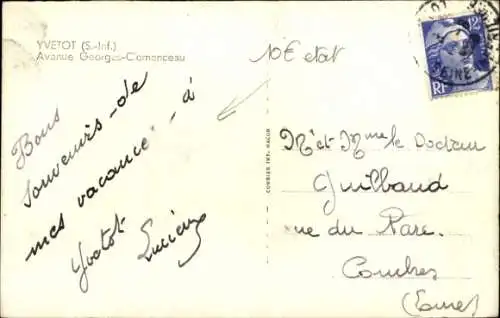 YVETOT (S.-Inf.)
Avenue Georges-Clemenceau
10 E etat
12
RF
SEINE
Bons
souvenirs de
mes vacances à
Yvetot
Lucien
COMBIER IMP. MACON
Mr et Mme le Docteur
Guilbaud
rue du Parc.
Combres